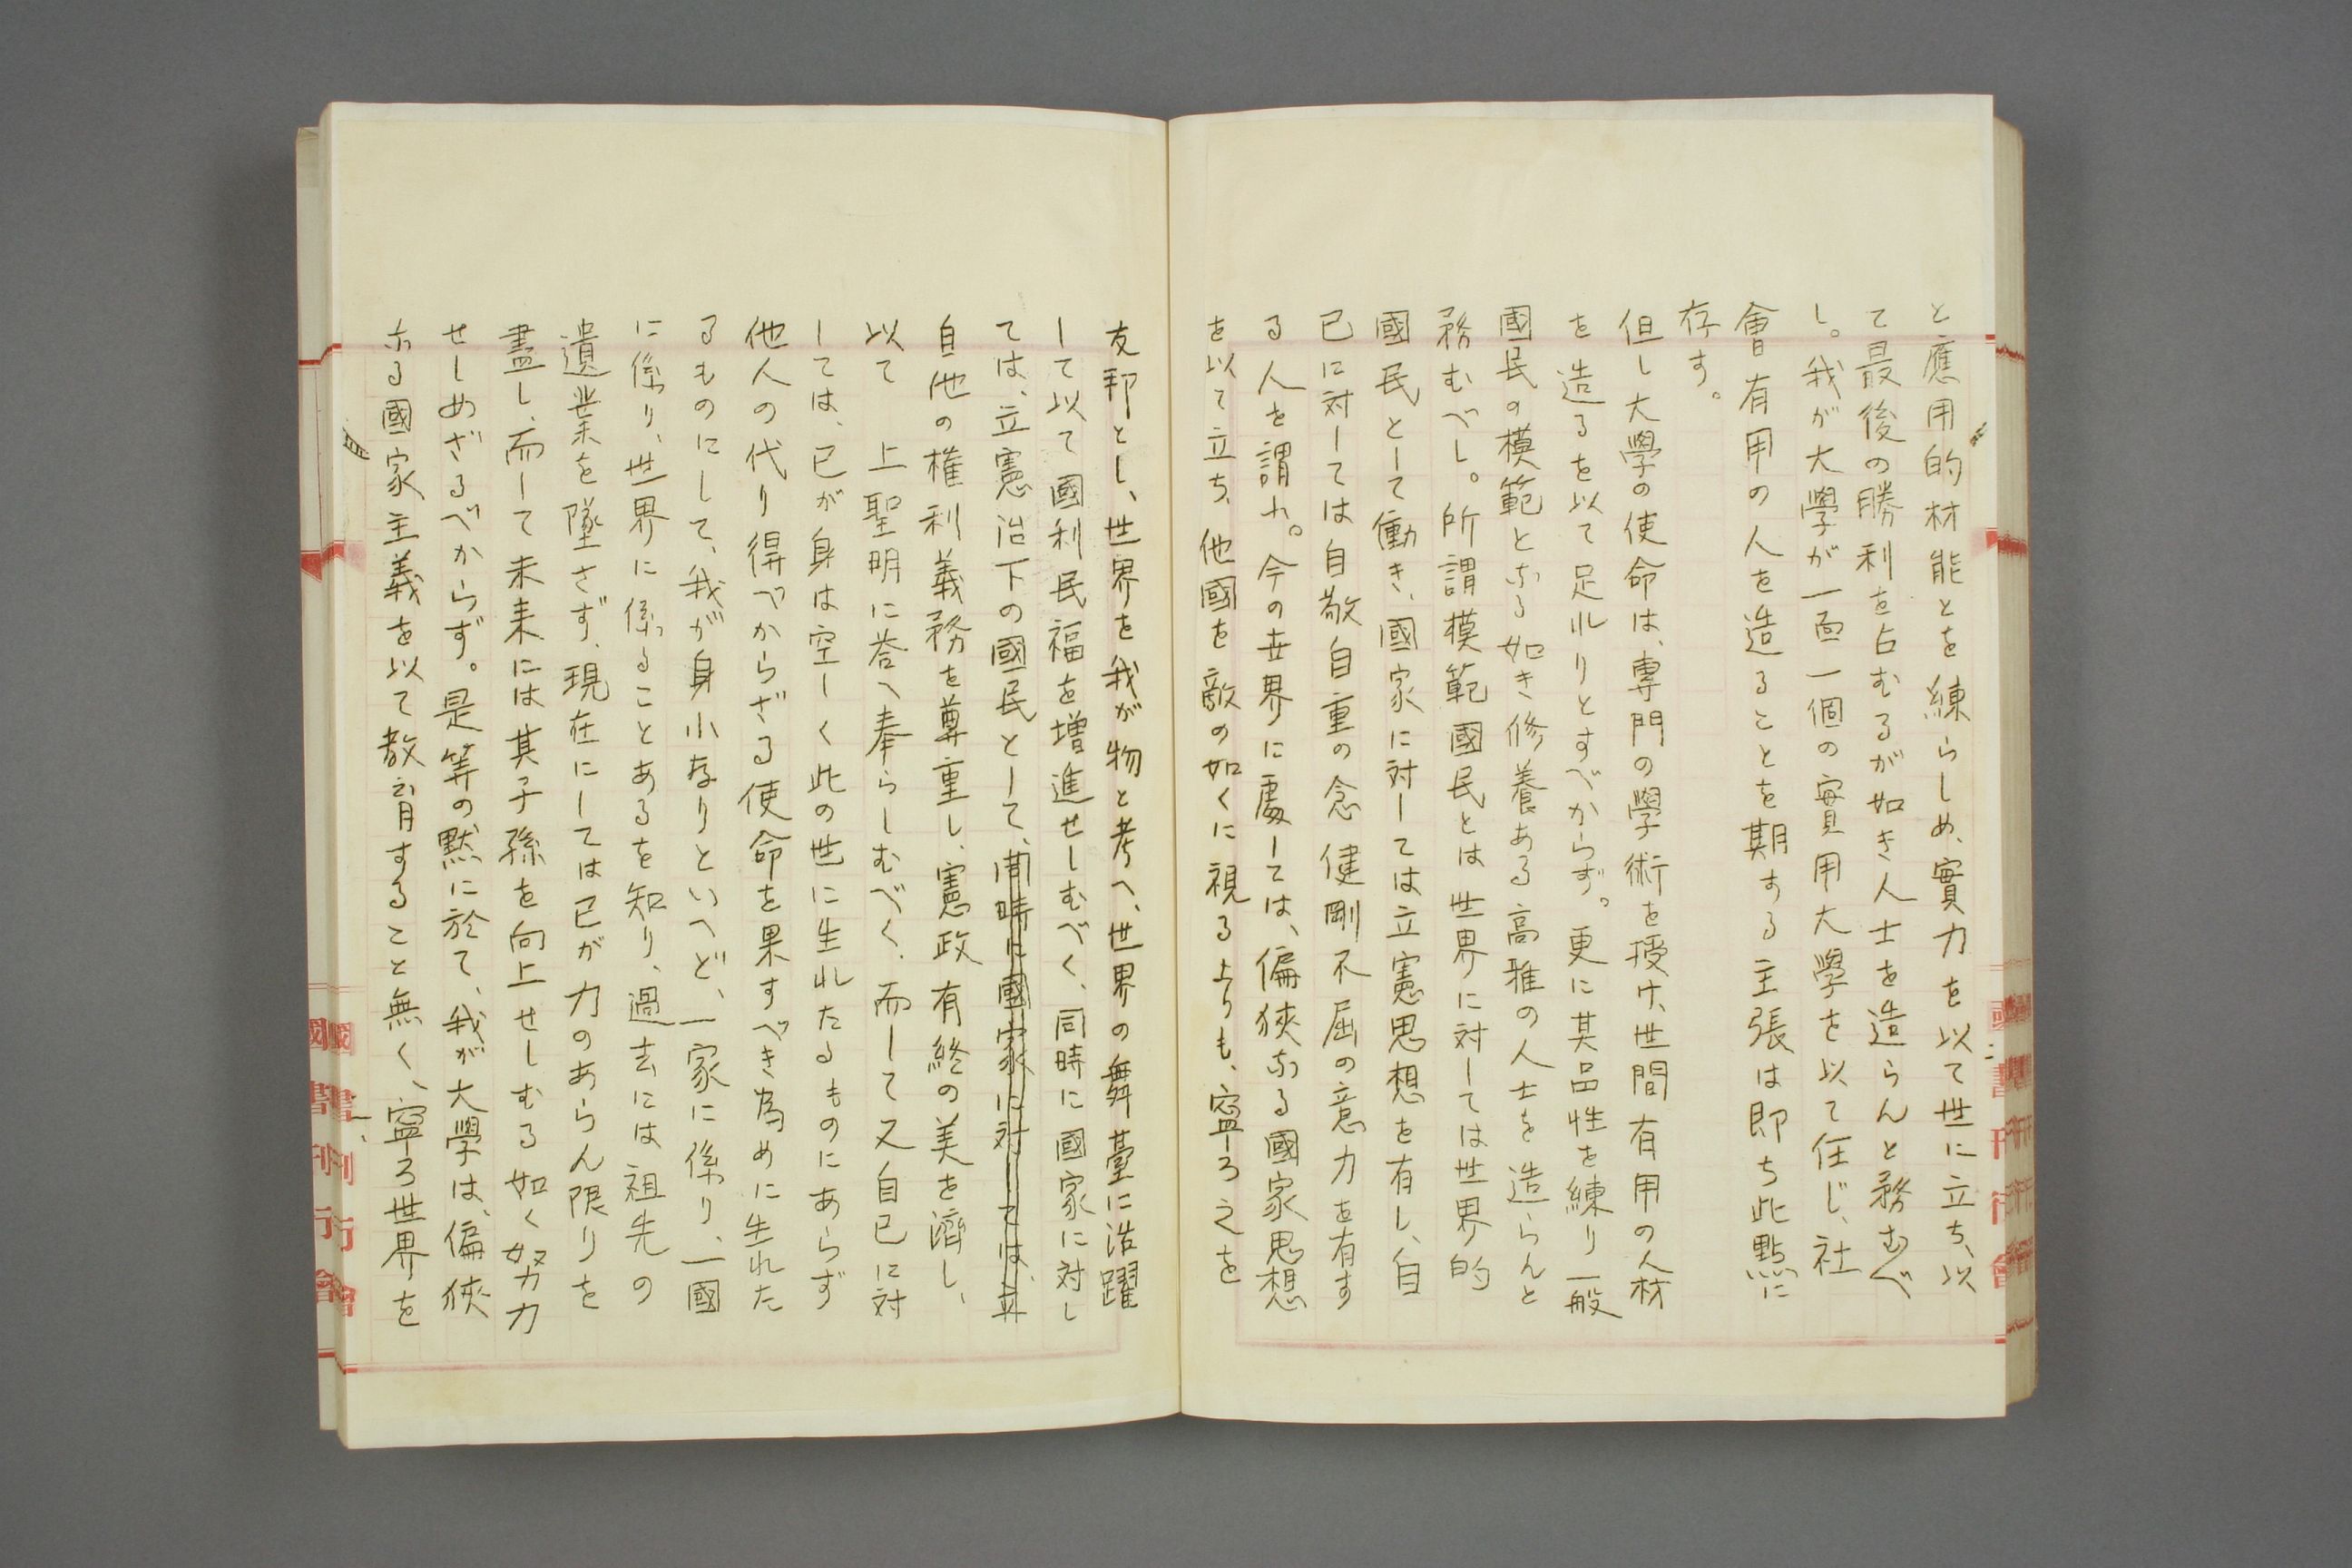 と應用的材能とを練らしめ、實力を以て世に立ち、以
て最後の勝利を占むるが如き人士を造らんと務むべ
し。我が大學が一面一個の實用大學を以て任じ、社
會有用の人を造ることを期する主張は即ち此點に
存す。
但し大學の使命は、専門の學術を授け、世間有用の人材
を造るを以て足れりとすべからず。更に其品性を練り一般
國民の模範となる如き修養ある高雅の人士を造らんと
務むべし。所謂模範國民とは世界に対しては世界的
國民として働き、國家に対しては立憲思想を有し、自
己に対しては自敬自重の念健剛不屈の意力を有す
る人を謂れ。今の世界に處しては、偏狹なる國家思想
を以て立ち、他國を敵の如くに視るよりも、寧ろ之を
友邦とし、世界を我が物と考へ、世界の舞臺に活躍
して以て國利民福を増進せしむべく、同時に國家に対し
ては、立憲治下の國民として、同時に國家に対しては、立
自他の権利義務を尊重し、憲政有終の美を濟し、
以て 上聖明に荅へ奉らしむべく、而して又自己に対
しては、已が身は空しく此の世に生れたるものにあらず
他人の代り得べからざる使命を果すべき為めに生れた
るものにして、我が身小なりといへど、一家に係り、一國
に係り、世界に係ることあるを知り、過去には祖先の
遺業を墜さず、現在にしては已が力のあらん限りを
盡し、而して未来には其子孫を向上せしむる如く努力
せしめざるべからず。是等の黙に於て、我が大學は、偏狹
なる國家主義を以て教育すること無く、寧ろ世界を
國書刊行會
國書刊行會